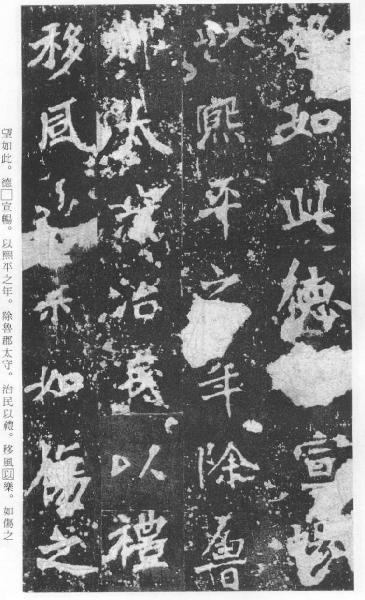 望如此德宣暢
以熙平之年除魯
郡太守治民以禮
移風樂如傷之
望如此。德□宣暢。以熙平之年。除魯郡太守。治民以禮。移風以樂。如傷之